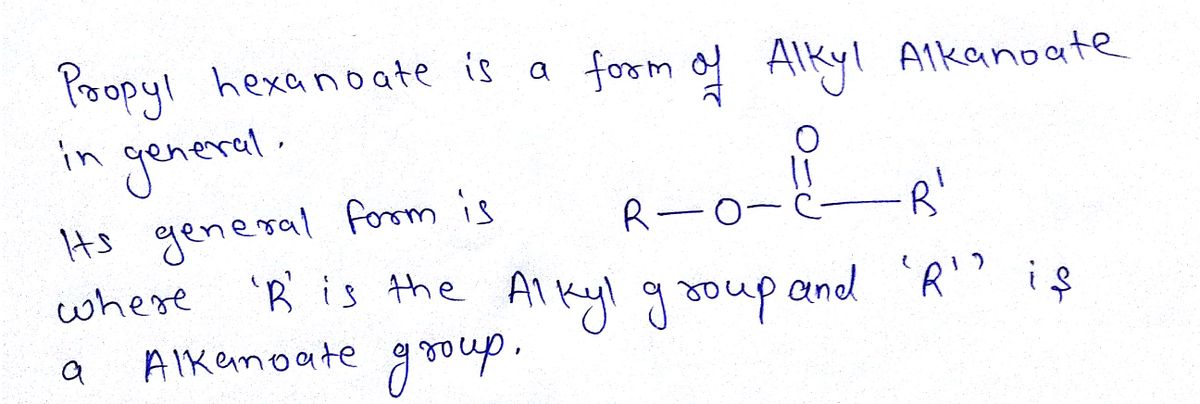 Propyl hexanoate is a form of Alkyl Alkanoate
in general.
O
Its general form is R—O—C—R'
where 'R' is the Alkyl group and 'R'' is
a Alkanoate group.